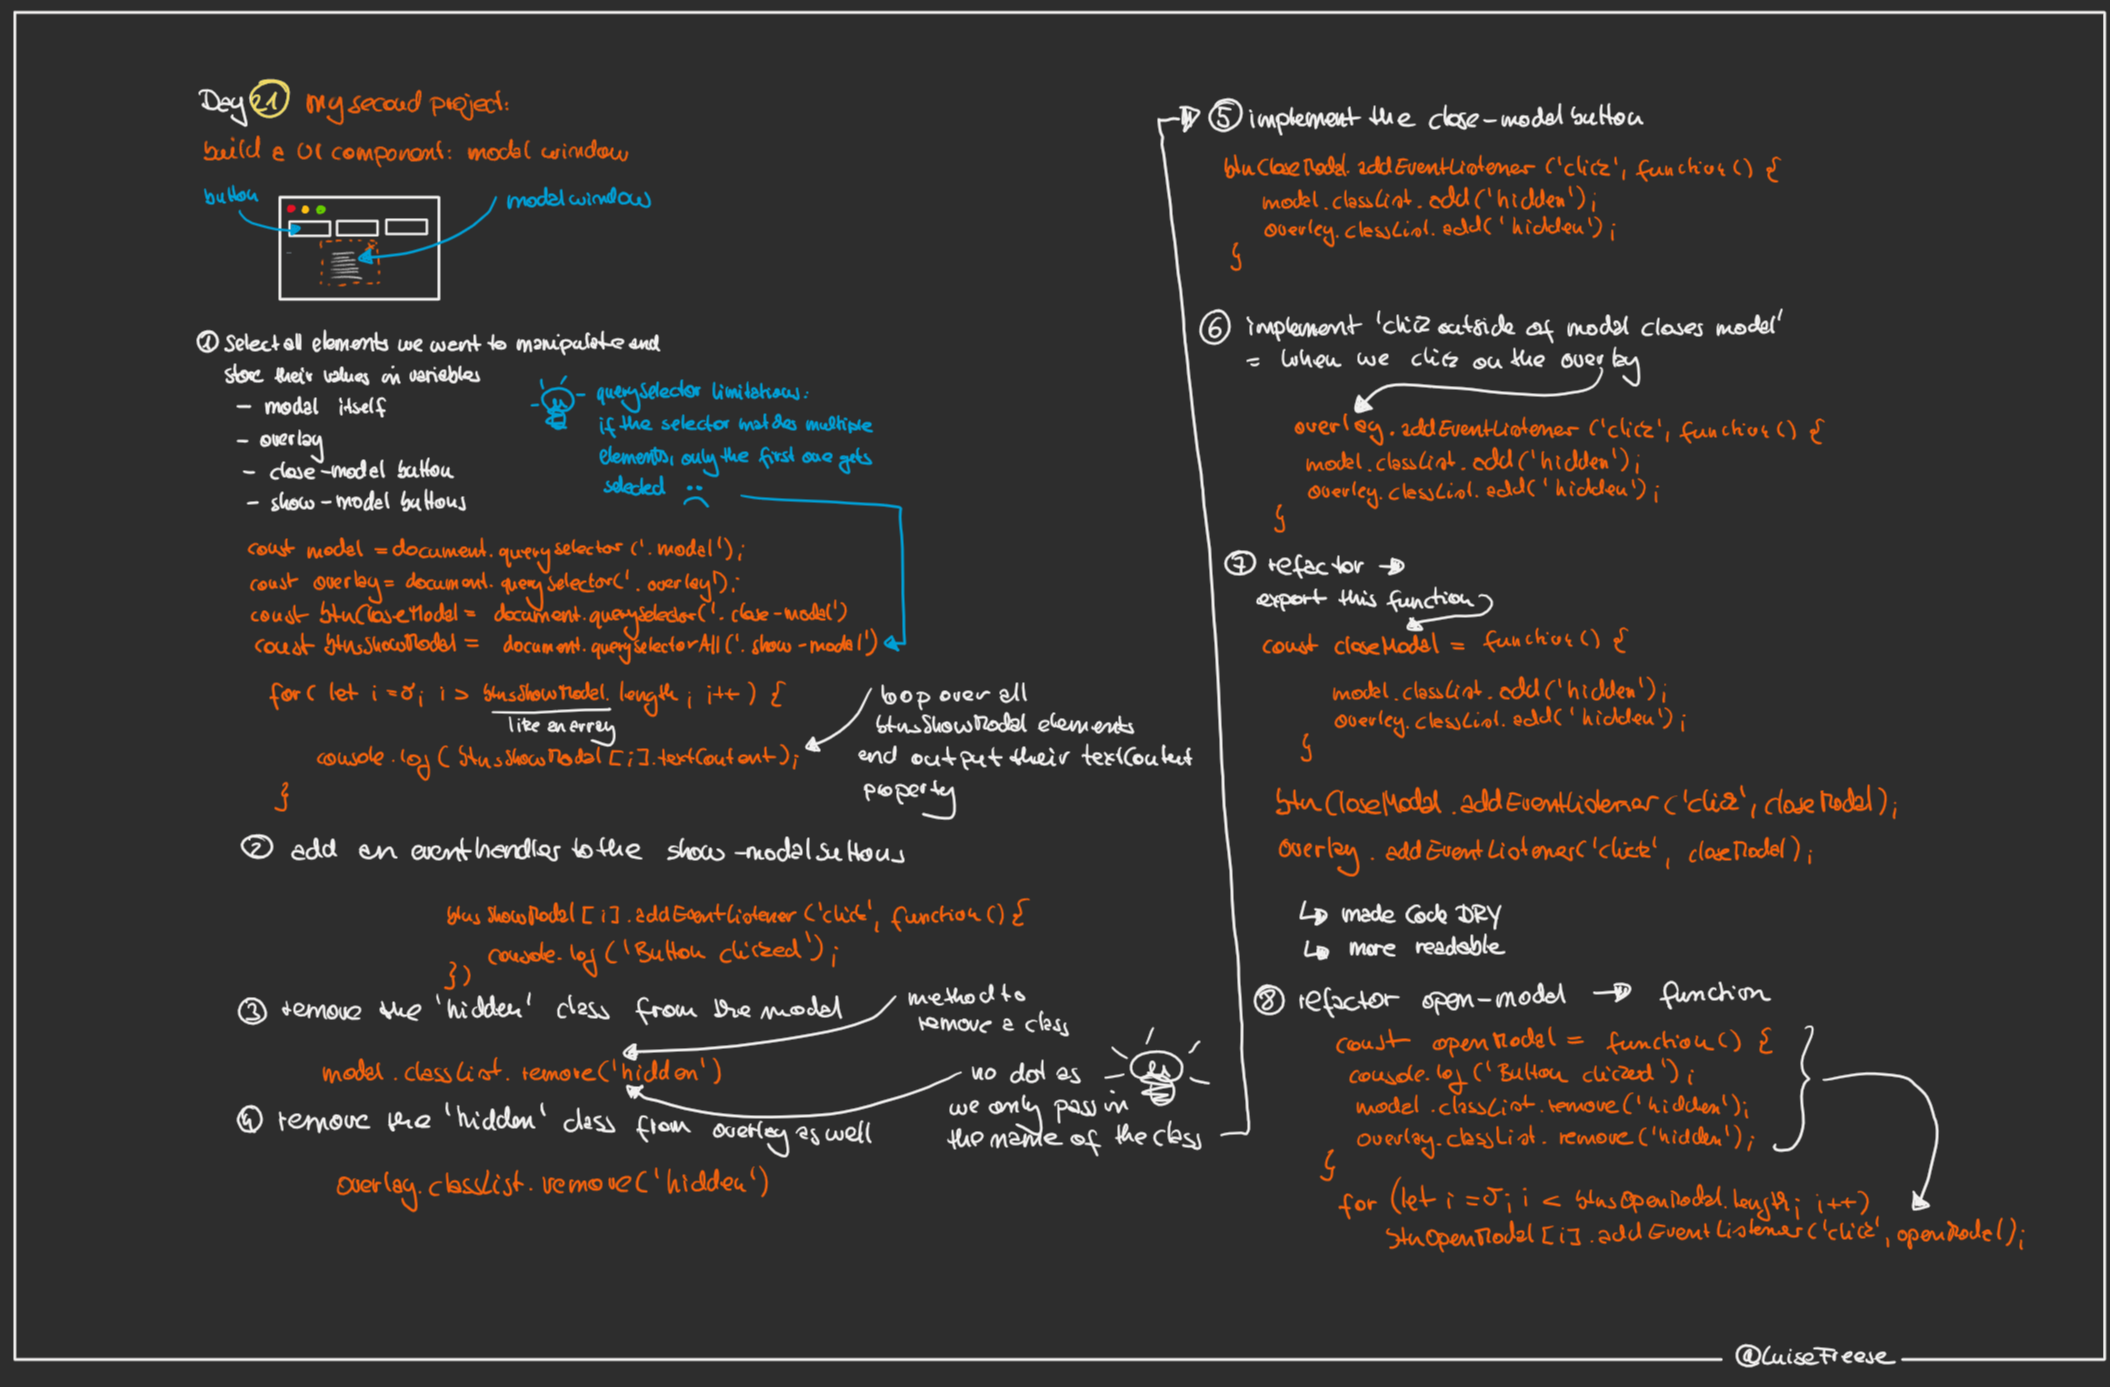 Day 21 my second project:
build a UI component: modal window
button
modal window
① Select all elements we want to manipulate and
store their values in variables
- modal itself
- overlay
- close-modal button
- show-modal buttons
querySelector limitations:
if the selector matches multiple
elements, only the first one gets
selected :(
const modal = document.querySelector('.modal');
const overlay = document.querySelector('.overlay');
const btnCloseModal = document.querySelector('.close-modal')
const btnsShowModal = document.querySelectorAll('.show-modal')
for( let i = 0; i > btnsShowModal.length; i++ ) {
like an array
console.log( btnsShowModal[i].textContent);
}
loop over all
btnsShowModal elements
and output their textContent
property
② add an eventhandler to the show-modal buttons
btnsShowModal[i].addEventListener('click', function() {
console.log('Button clicked');
})
③ remove the 'hidden' class from the modal
method to
remove a class
modal.classList.remove('hidden')
no dot as
we only pass in
the name of the class
④ remove the 'hidden' class from overlay as well
overlay.classList.remove('hidden')
⑤ implement the close-modal button
btnCloseModal.addEventListener('click', function() {
modal.classList.add('hidden');
overlay.classList.add('hidden');
}
⑥ implement 'click outside of modal closes modal'
= when we click on the overlay
overlay.addEventListener('click', function() {
modal.classList.add('hidden');
overlay.classList.add('hidden');
}
⑦ refactor →
export this function
const closeModal = function() {
modal.classList.add('hidden');
overlay.classList.add('hidden');
}
btnCloseModal.addEventListener('click', closeModal);
overlay.addEventListener('click', closeModal);
↳ made Code DRY
↳ more readable
⑧ refactor open-modal → function
const openModal = function() {
console.log('Button clicked');
modal.classList.remove('hidden');
overlay.classList.remove('hidden');
}
for (let i = 0; i < btnsOpenModal.length; i++)
btnOpenModal[i].addEventListener('click', openModal);
@LuiseFreese